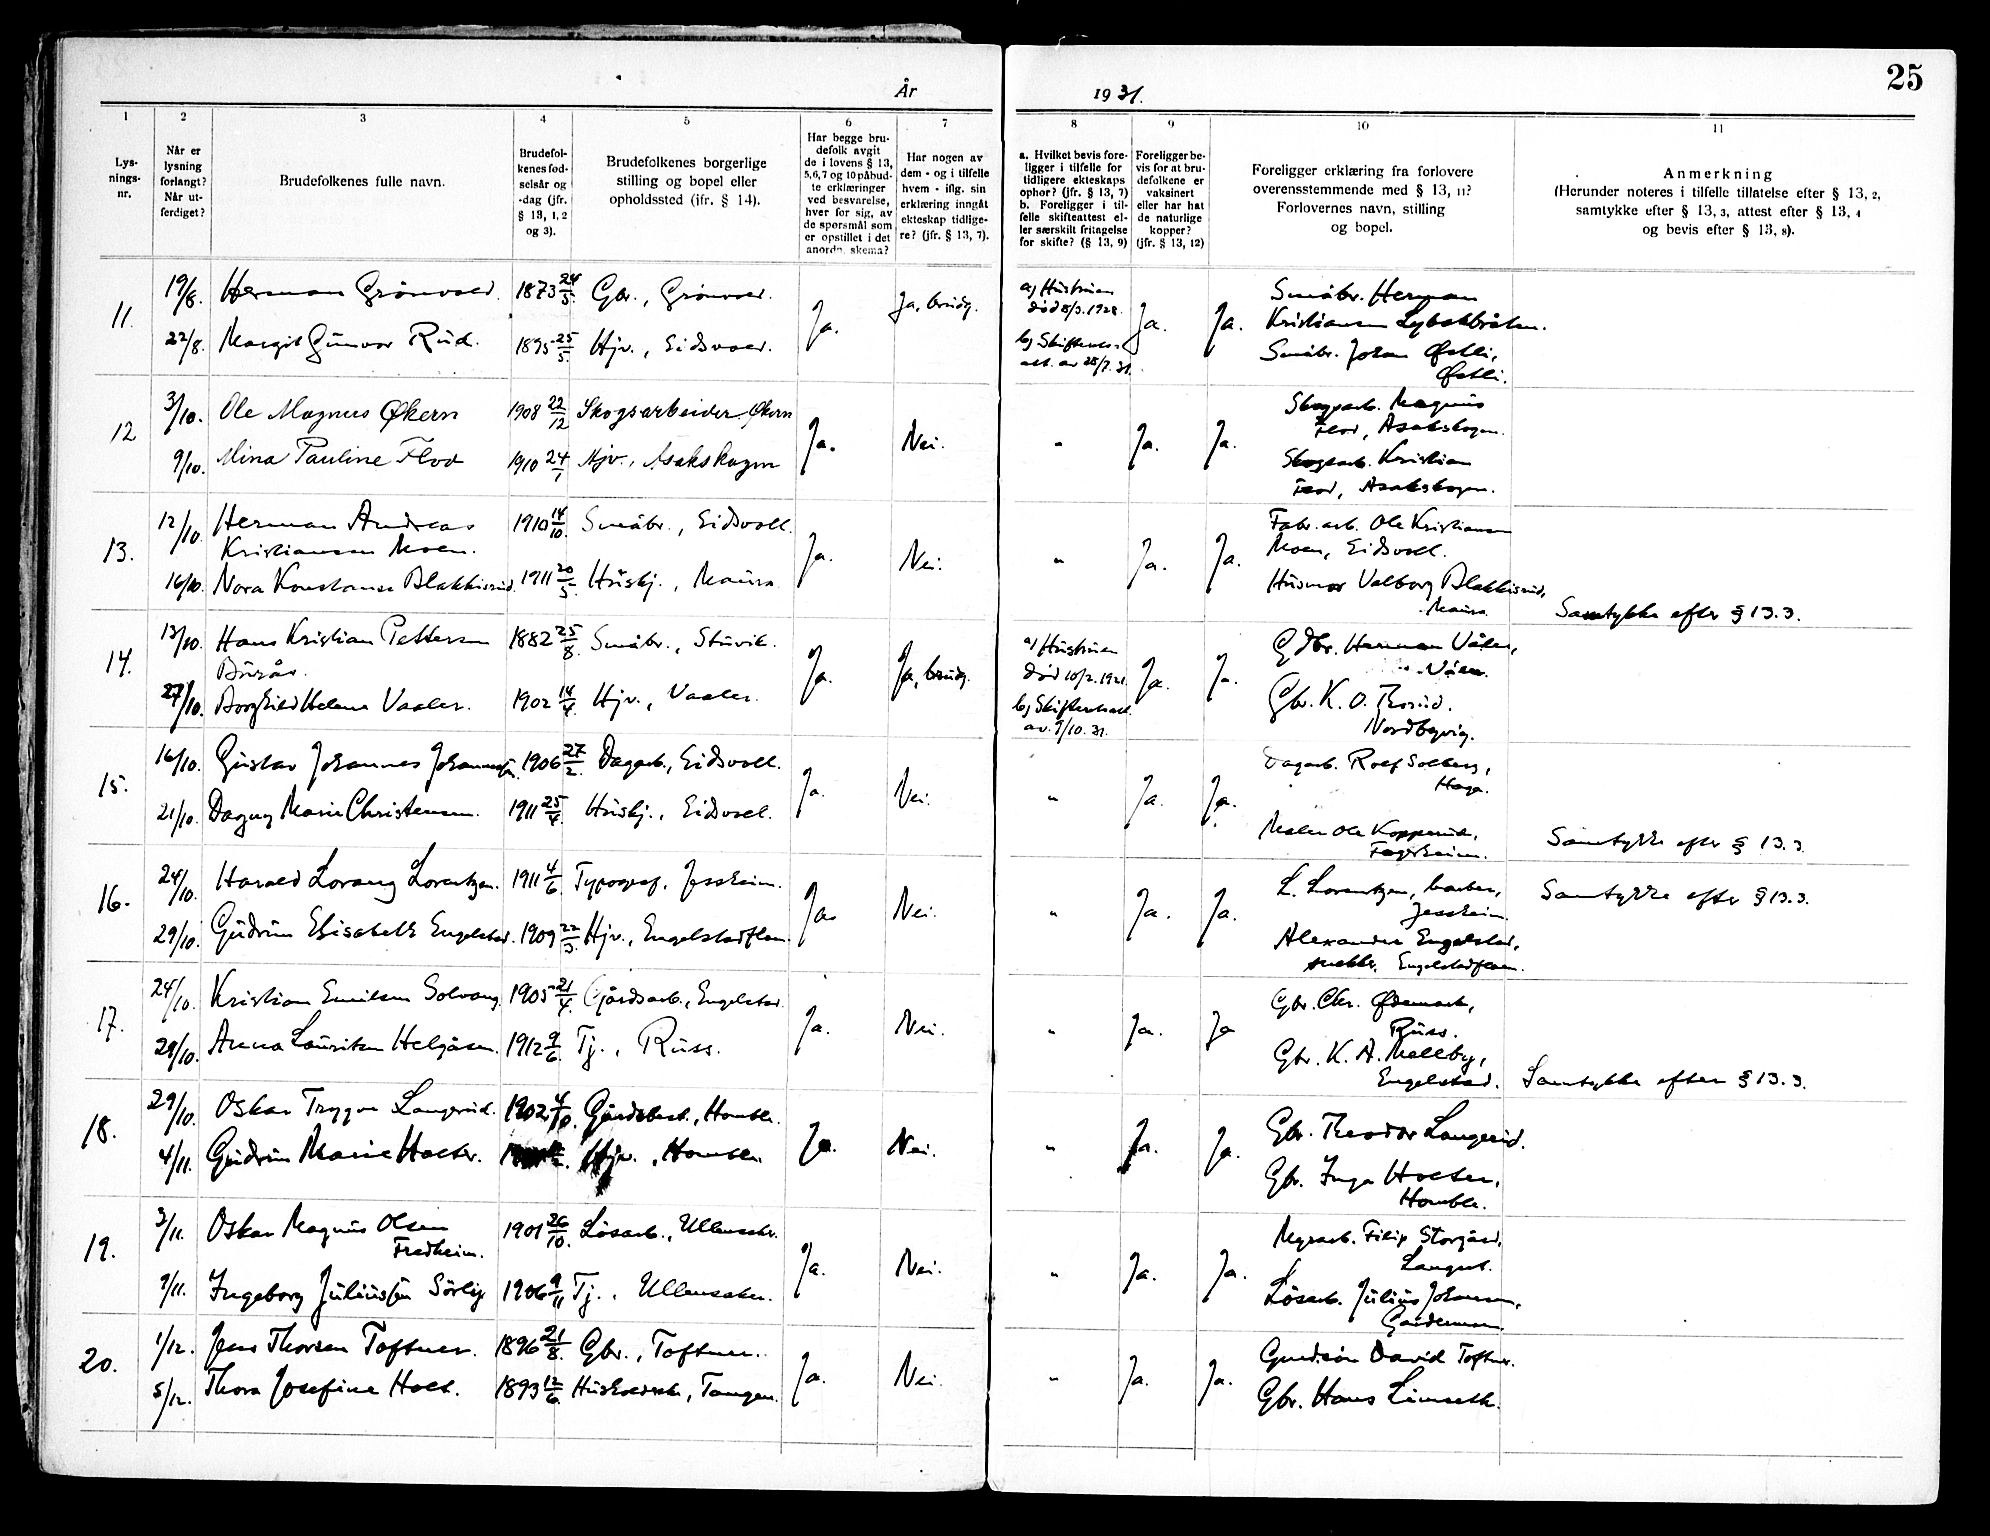 25
År
1931.
1
2
3
4
5
6
7
8
9
10
11
Lys-
nings-
nr.
Når er
lysning
forlangt?
Når ut-
ferdiget?
Brudefolkenes fulle navn.
Brudefol-
kenes fød-
selsår og
-dag (jfr.
§ 13, 1, 2
og 3).
Brudefolkenes borgerlige
stilling og bopel eller
opholdssted (jfr. § 14).
Har begge bru-
defolk avgit
de i lovens § 13,
5,6,7 og 10 påbud-
te erklæringer
ved besvarelse,
hver for sig, av
de spørsmål som
er opstillet i det
anordn. skema?
Har nogen av
dem - og i tilfelle
hvem - iflg. sin
erklæring inngått
ekteskap tidlige-
re? (jfr. § 13, 7).
a. Hvilket bevis fore-
ligger i tilfelle for
tidligere ekteskaps
ophør? (jfr. § 13, 7)
b. Foreligger i til-
felle skifteattest el-
ler særskilt fritagelse
for skifte? (§ 13, 9)
Foreligger be-
vis for at bru-
defolkene er
vaksinert
eller har hat
de naturlige
kopper?
(jfr. § 13, 12)
Foreligger erklæring fra forlovere
overensstemmende med § 13, 11?
Forlovernes navn, stilling
og bopel.
Anmerkning
(Herunder noteres i tilfelle tillatelse efter § 13, 2,
samtykke efter § 13, 3, attest efter § 13, 4
og bevis efter § 13, 8).
11.
19/8. Herman Grönvold. 1873 24/5. Gbr., Grönvold.
22/8. Margit Gunvor Rud. 1895 25/5. Hjv., Eidsvold.
Ja.
Ja, brudg.
a) Hustruen
död 8/3.1928.
b) Skifteat-
test. av 28/7.31.
Ja.
Ja.
Småbr. Herman
Kristiansen
Småbr. Johan Østli,
Østli.
12
3/10. Ole Magnus Økern 1908 22/12 Skogsarbeider, Økern
9/10. Mina Pauline Flod 1910 24/1 Hjv., Asakskogen
Ja.
Nei.
"
Ja.
Ja.
Skogsarb. Magnus
Flod, Asakskogen.
Skogsarb. Kristian
Flod, Asakskogen.
13.
12/10. Herman Andreas 1910 14/10. Småbr., Eidsvoll.
Kristiansen Moen.
16/10. Nora Konstanse Blakkisrud. 1911 20/5. Hushj., Maura.
Ja.
Nei.
"
Ja.
Ja.
Fabr.arb. Ole Kristiansen
Moen, Eidsvoll.
Husmor Valborg Blakkisrud,
Maura.
Samtykke efter § 13.3.
14.
13/10. Hans Kristian Pettersen 1882 25/8. Småbr., Stuvik.
Burås.
27/10. Borghild Helene Vaaler. 1902 14/4. Hjv., Vaaler.
Ja.
Ja, brudg.
a) Hustruen
död 10/2.1921.
b) Skifteattest.
av. 9/10.31.
Ja.
Ja.
Gdbr. Herman Våler,
Våler.
Gbr. K. O. Trorud.
Nordbyvig.
15.
16/10. Gustav Johannes Johannessen. 1906 27/2. Dagarb., Eidsvoll.
21/10. Dagny Marie Christensen. 1911 25/4. Hushj., Eidsvoll.
Ja.
Nei.
"
Ja.
Ja.
Dagarb. Rolf Solberg,
Haga.
Maler Ole Kopperud,
Fagerheim.
Samtykke efter § 13.3.
16.
24/10. Harald Lorang Lorentzen. 1911 4/6. Typograf, Jessheim.
29/10. Gudrun Elisabeth Engelstad. 1909 22/3. Hjv., Engelstadflaen.
Ja.
Nei.
"
Ja.
Ja.
L. Lorentzen, barber,
Jessheim.
Alexander Engelstad,
snekker, Engelstadflaen.
Samtykke efter § 13.3.
17.
24/10. Kristian Emilsen Solvang. 1905 21/4. Gårdsarb., Engelstad.
28/10. Anna Lauritsen Helgåsen. 1912 9/6. Tj., Russ.
Ja.
Nei.
"
Ja.
Ja
Gbr. Chr. Ødemark,
Russ.
Gbr. K. A. Melby,
Engelstad.
Samtykke efter § 13.3.
18.
29/10. Oskar Trygve Langerud. 1902 4/10. Gårdsbest., Homble.
4/11. Gudrun Marie Holter. Hjv., Homble.
Ja.
Nei.
"
Ja.
Ja.
Gbr. Theodor Langerud.
Gbr. Inga Holter,
Homble.
19.
3/11. Oskar Magnus Olsen 1901 26/10. Lösarb., Ullensaker.
Fredheim.
9/11. Ingeborg Juliussen Sörlie 1906 9/11 Tj., Ullensaker.
Ja.
Nei.
"
Ja.
Ja.
Myrarb. Filip Storgård,
Lösarb. Julius Johansen,
Gardermoen.
20.
1/12. Jens Thorsen Toftner. 1896 21/8. Gbr., Toftner.
5/12. Thora Josefine Holt. 1893 12/6. Husholdersk., Tangen.
Ja.
Nei.
"
Ja.
Ja.
David Toftner.
Gbr. Hans Limseth.